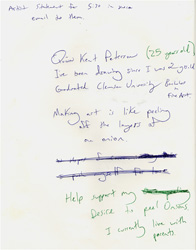 Artist Statement for 5.30 in more
email to them
Quinn Kent Peterson (25 years old)
I've been drawing since I was 2 yrs old
Graduated Clemson University
Fine Art
Making art is like peeling
off the layers of
an onion
Help support my
Desire to peel Onions
I currently live with
parents